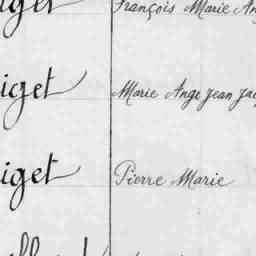 iget François Marie Ang
iget Marie Ange Jean Jac
iget Pierre Marie